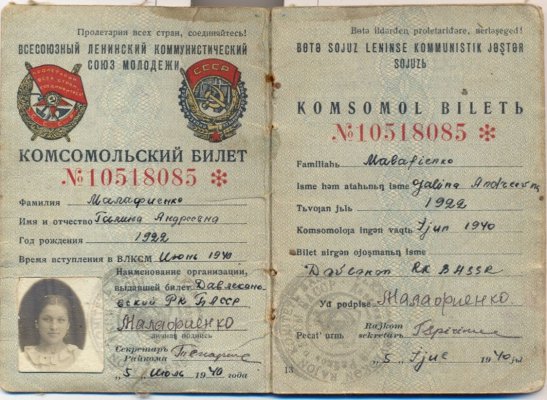 Пролетарии всех стран, соединяйтесь!
ВСЕСОЮЗНЫЙ ЛЕНИНСКИЙ КОММУНИСТИЧЕСКИЙ
СОЮЗ МОЛОДЕЖИ
СССР
КОМСОМОЛЬСКИЙ БИЛЕТ
№10518085 *
Фамилия Малафиенко
Имя и отчество Галина Андреевна
Год рождения 1922
Время вступления в ВЛКСМ Июнь 1940
Наименование организации,
выдавшей билет Давлекана-
вский РК БАССР
Малафиенко
личная подпись
Секретарь
Райкома
"5" Июль 1940 года
Bɵtə ildərdeꞑ proletarìdəre, nerləşeged!
BƟTƏ SOJUZ LENINSE KOMMUNISTIK JƏŞTƏR
SOJUZЬ
KOMSOMOL BILETЬ
№10518085 *
Familiahь Malafienko
Isme həm atahьnьꞑ isme Galina Andreevna
Tьvojan jьlь 1922
Komsomoloja ingən vaqtь Ijun 1940
Bilet birgən ojoşmanьꞑ isme
RK BASSR
Yd podpise Малафиенко
Pecat' urnь
Rajkom
sekretarь
"5" Ijul 1940 jьl
13